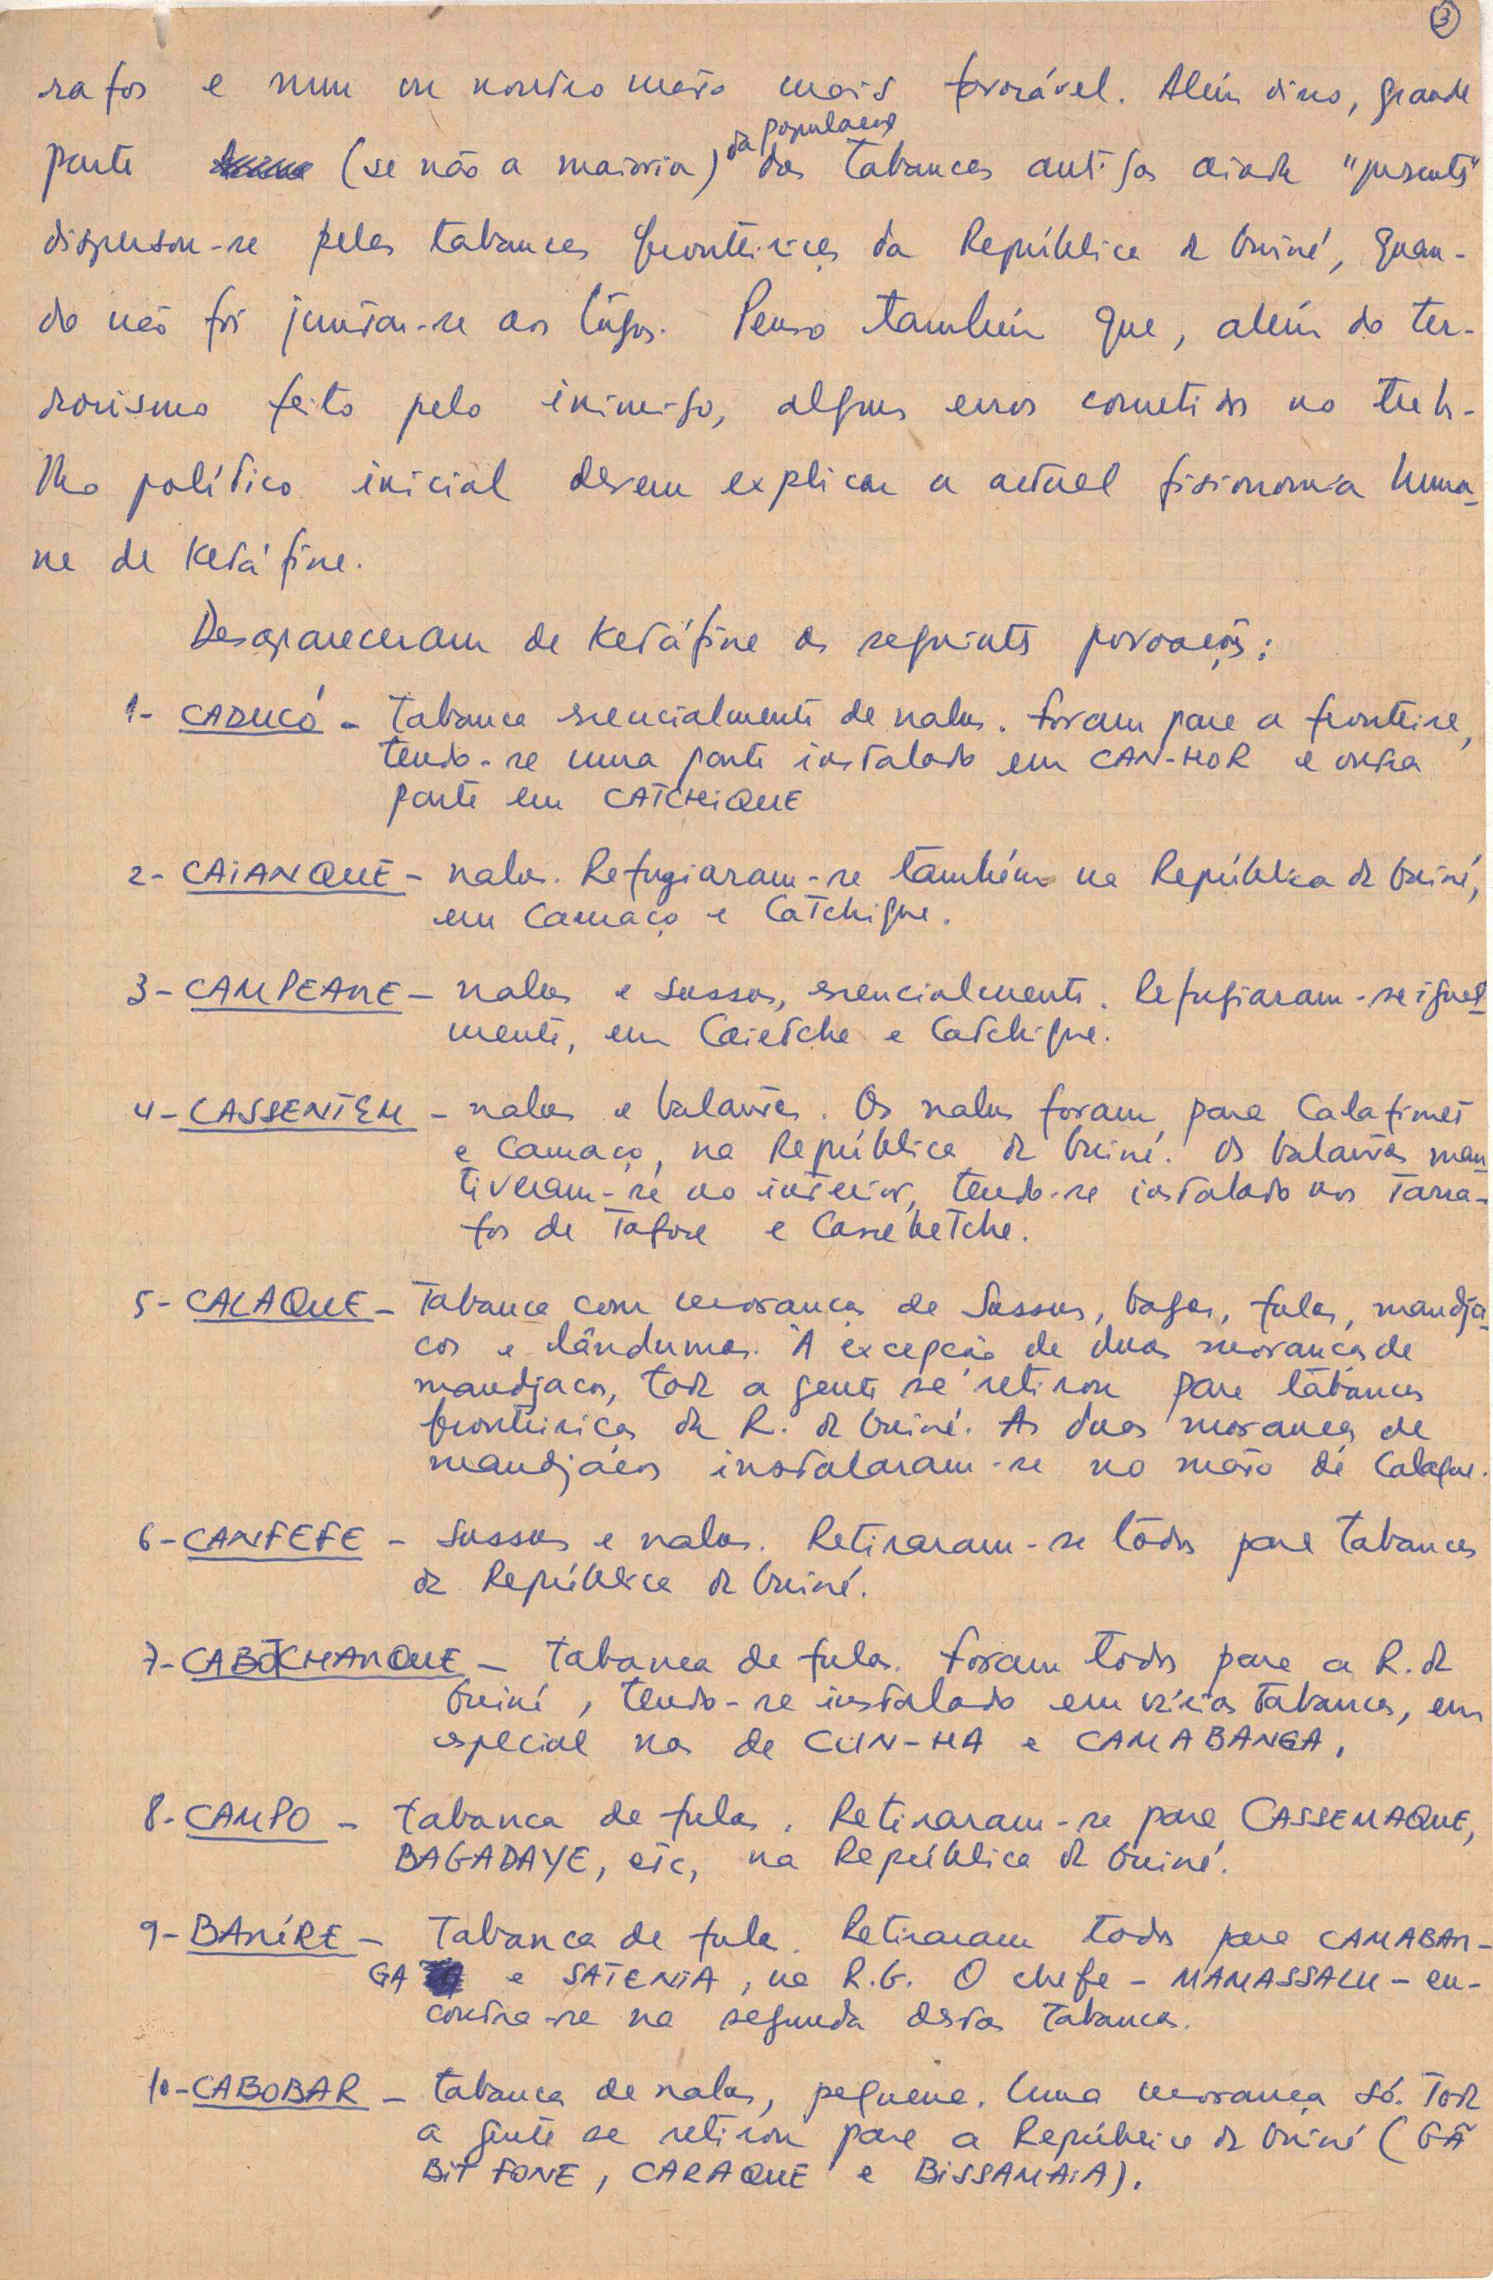 3
rafos e num ou noutro mato mais favorável. Além disso, grande
parte (se não a maioria) da população das tabancas antigas ainda "presente"
dispersou-se pelas tabancas fronteiriças da República da Guiné, quan-
do não foi juntar-se aos tugas. Penso também que, além do ter-
rorismo feito pelo inimigo, alguns erros cometidos no traba-
lho político inicial devem explicar a actual fisionomia huma-
na de Ketáfine.
Desapareceram de Ketáfine as seguintes povoações:
1- CADUCÓ - Tabanca essencialmente de nalus. Foram para a fronteira,
tendo-se uma parte instalado em CAN-HOR e outra
parte em CATCHIQUE
2- CAIANQUE - nalus. Refugiaram-se também na República da Guiné,
em Camaço e Catchique.
3- CAMPEANE - nalus e sossos, essencialmente. Refugiaram-se igual
mente, em Caietche e Catchique.
4- CASSENTEM - nalus e balantas. Os nalus foram para Calafimet
e Camaço, na República da Guiné. Os balantas man
tiveram-se no interior, tendo-se instalado nos Tarra-
fos de Tafore e Cassebetche.
5- CALAQUE - Tabanca com moranças de Sossos, bagas, fulas, mandja-
cos e lândumas. À excepção de duas moranças de
mandjacos, toda a gente se retirou para tabancas
fronteiriças da R. da Guiné. As duas moranças de
mandjacos instalaram-se no mato de Calaque.
6- CANFEFE - Sossos e nalus. Retiraram-se todos para tabancas
da República da Guiné.
7- CABOTCHANQUE - Tabanca de fulas. Foram todos para a R. da
Guiné, tendo-se instalado em várias tabancas, em
especial nas de CUN-HA e CAMABANGA.
8- CAMPO - tabanca de fulas. Retiraram-se para CASSEMAQUE,
BAGADAYE, etc, na República da Guiné.
9- BANÍRE - Tabanca de fula. Retiraram todos para CAMABAN-
GA e SATENIA, na R.G. O chefe - MAMASSALU - en-
contra-se na segunda destas tabancas.
10- CABOBAR - tabanca de nalus, pequena. Uma morança só. Toda
a gente se retirou para a República da Guiné (GÃ
BIT FONE, CARAQUE e BISSAMAIA).